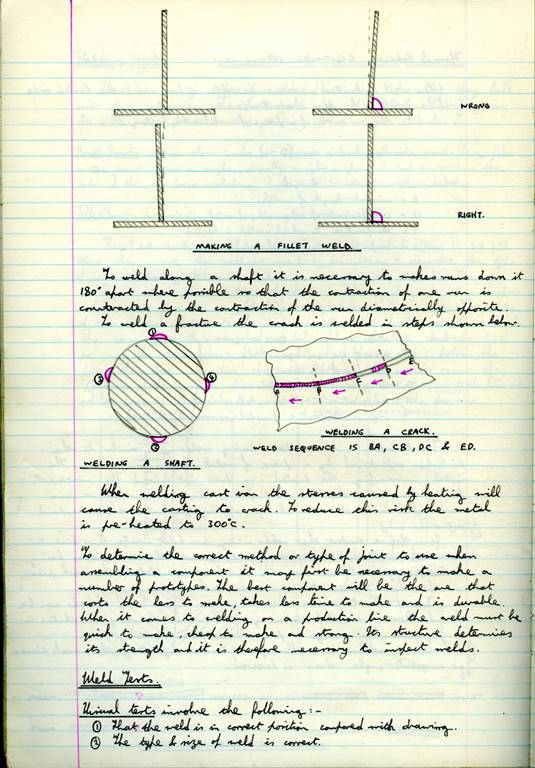 WRONG
RIGHT.
MAKING A FILLET WELD.
To weld along a shaft it is necessary to makes runs down it
180° apart where possible so that the contraction of one run is
counteracted by the contraction of the run diametrically opposite.
To weld a fracture the crack is welded in steps shown below.
①
③
④
②
A
B
C
D
E
WELDING A CRACK.
WELD SEQUENCE IS BA, CB, DC & ED.
WELDING A SHAFT.
When welding cast iron the stresses caused by heating will
cause the casting to crack. To reduce this risk the metal
is pre-heated to 300°c.
To determine the correct method or type of joint to use when
assembling a component it may first be necessary to make a
number of prototypes. The best component will be the one that
costs the less to make, takes less time to make and is durable.
When it comes to welding on a production line the weld must be
quick to make, cheap to make and strong. Its structure determines
its strength and it is therefore necessary to inspect welds.
Weld Tests.
Visual tests involve the following:-
① That the weld is in correct position compared with drawing.
② The type & size of weld is correct.